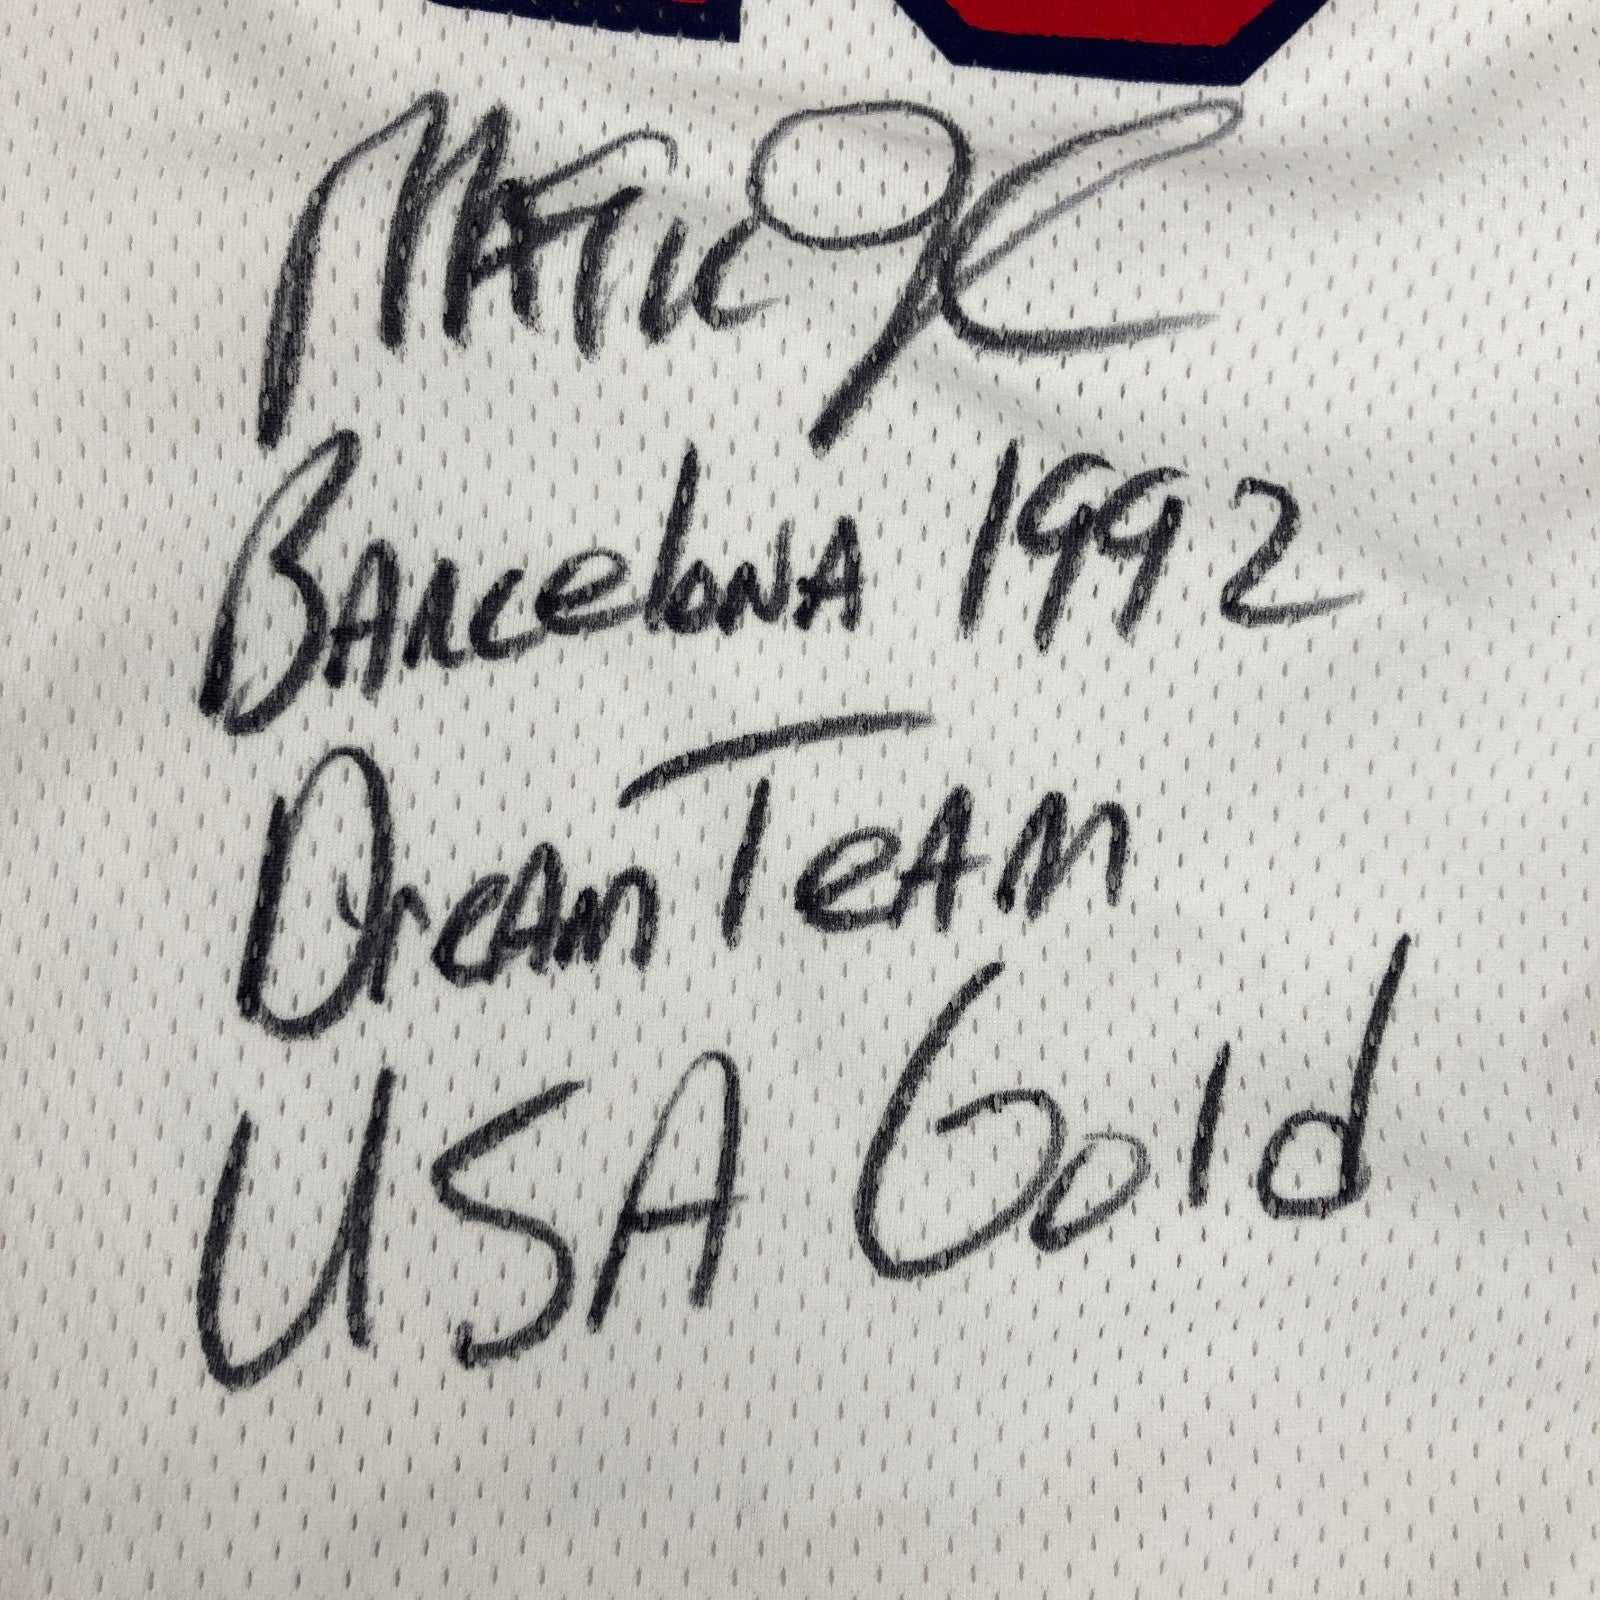 Magic J
Barcelona 1992
Dream Team
USA Gold